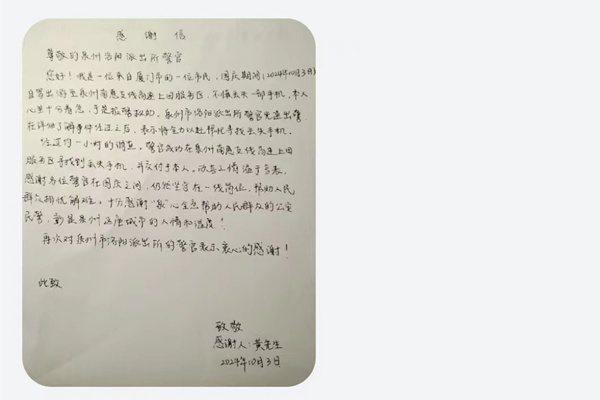 感谢信
尊敬的泉州洛阳派出所警官
您好！我是一位来自厦门市的一位市民，国庆期间(2024年10月3日)
自驾出游至泉州南惠支线高速上田服务区，不慎丢失一部手机，本人
心里十分着急，于是报警救助。泉州市洛阳派出所警官火速出警
在详细了解事件经过之后，表示将全力以赴帮忙寻找丢失手机。
经过约一小时的调查。警官成功在泉州南惠支线高速上田
服务区寻找到丢失手机，并交付于本人。欣喜之情溢于言表，
感谢各位警官在国庆之间，仍然坚守在一线岗位，帮助人民
群众排忧解难。十分感谢"泉"心全意帮助人民群众的公安
民警，彰显泉州这座城市的人情和温度！
再次对泉州市洛阳派出所的警官表示衷心的感谢！
此致
致敬
感谢人：黄先生
2024年10月3日